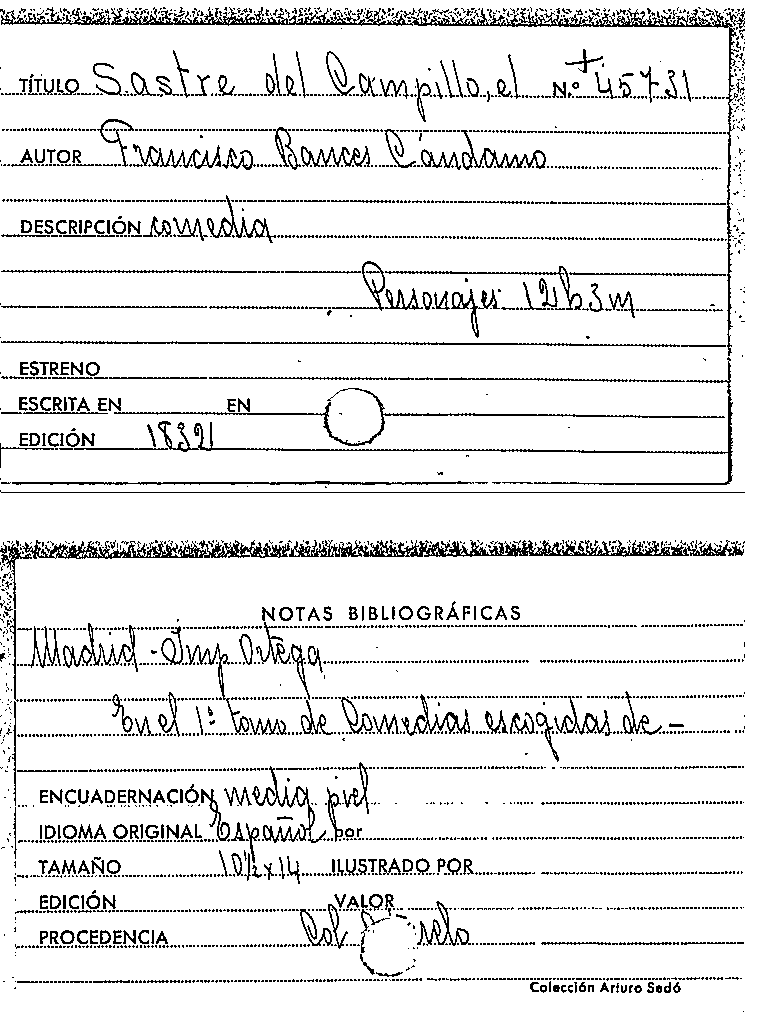 TÍTULO Sastre del Campillo, el N.º + 45731
AUTOR Francisco Bances Cándamo
DESCRIPCIÓN comedia
Personajes 12h 3m
ESTRENO
ESCRITA EN EN
EDICIÓN 1832
NOTAS BIBLIOGRÁFICAS
Madrid - Imp Ortega
En el 1º tomo de Comedias escogidas de -
ENCUADERNACIÓN media piel
IDIOMA ORIGINAL Español por
TAMAÑO 10½ x 14 ILUSTRADO POR
EDICIÓN VALOR
PROCEDENCIA Col
Colección Arturo Sedó